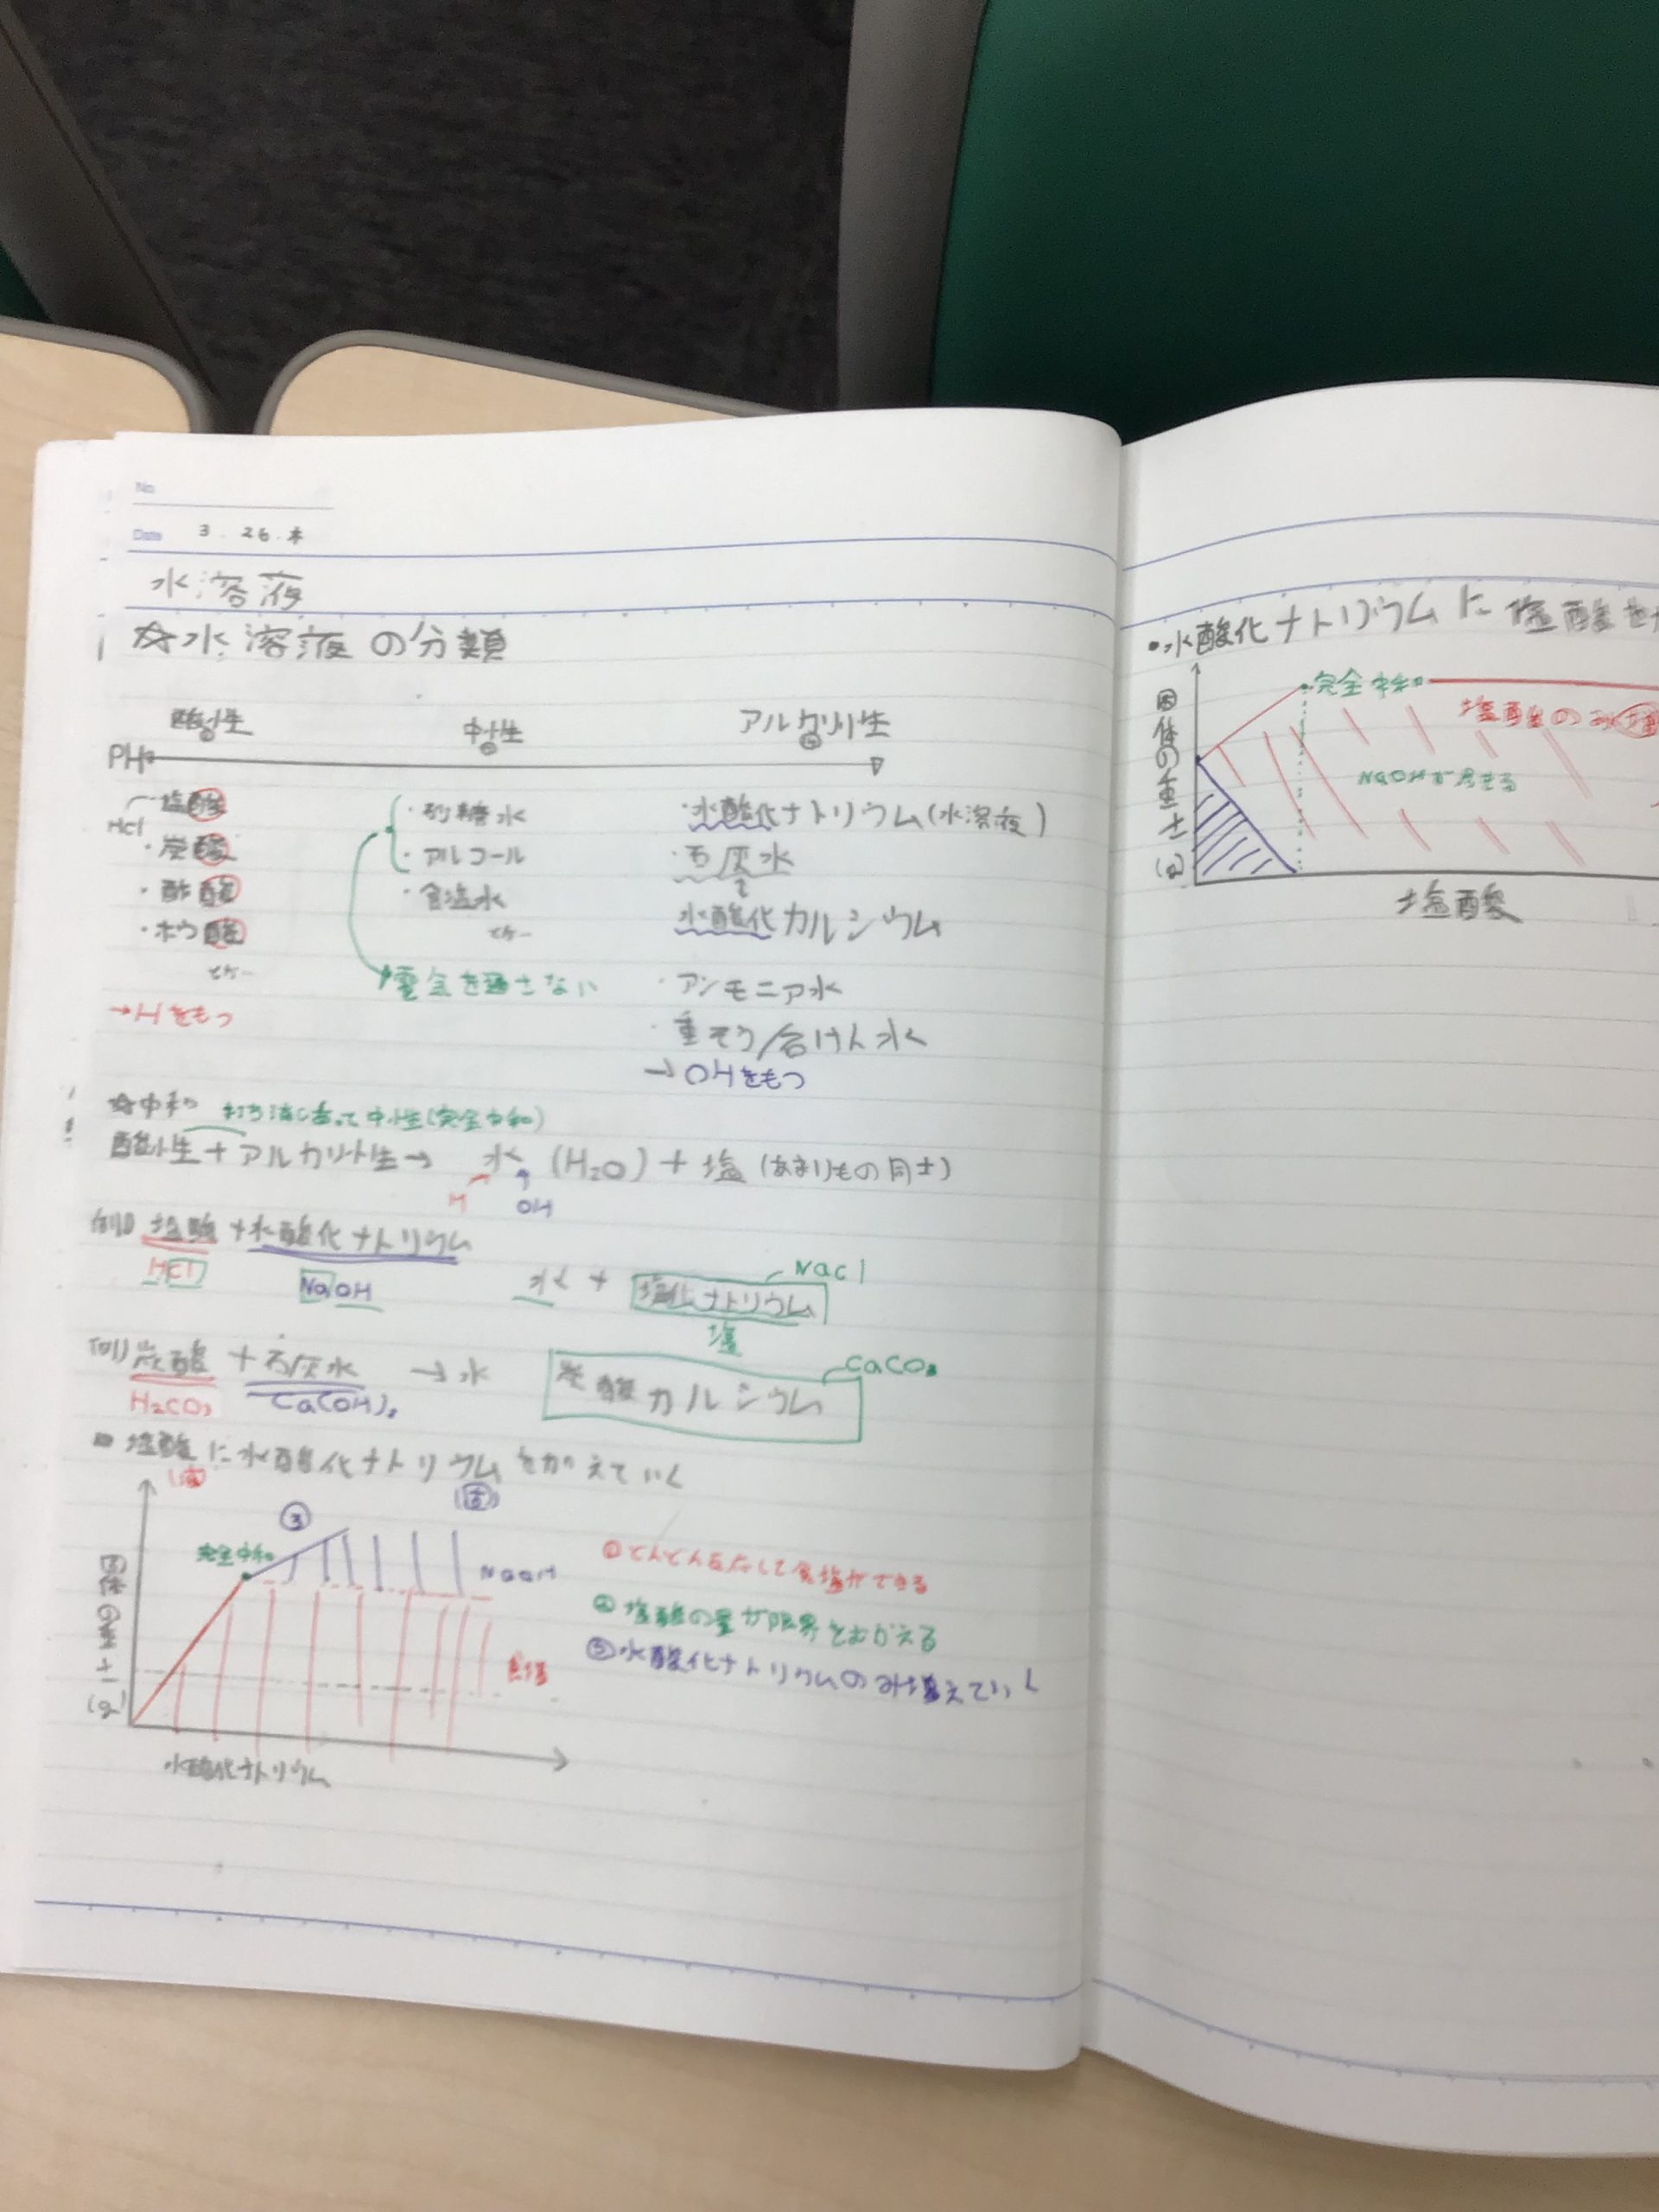 No
Date 3.26.木
水溶液
☆水溶液の分類
酸性 中性 アルカリ性
PH
塩酸 HCl
・炭酸
・酢酸
・ホウ酸
→Hをもつ
・砂糖水
・アルコール
・食塩水
電気を通さない
・水酸化ナトリウム(水溶液)
・石灰水
水酸化カルシウム
・アンモニア水
・重そう/石けん水
→OHをもつ
☆中和 打ち消し合って中性(完全中和)
酸性+アルカリ性→ 水 (H₂O) + 塩 (あまりもの同士)
H OH
例) 塩酸+水酸化ナトリウム
HCl NaOH
水 + 塩化ナトリウム NaCl
塩
例) 炭酸+石灰水 →水 炭酸カルシウム CaCO₃
H₂CO₃ Ca(OH)₂
塩酸に水酸化ナトリウムを加えていく
(液) (固)
③
完全中和
NaOH
食塩
固体の重さ(g)
水酸化ナトリウム
①どんどん反応して食塩ができる
②塩酸の量が限界をむかえる
③水酸化ナトリウムのみ増えていく
・水酸化ナトリウムに塩酸を
完全中和
塩酸のみ増
NaOHが尽きる
固体の重さ(g)
塩酸